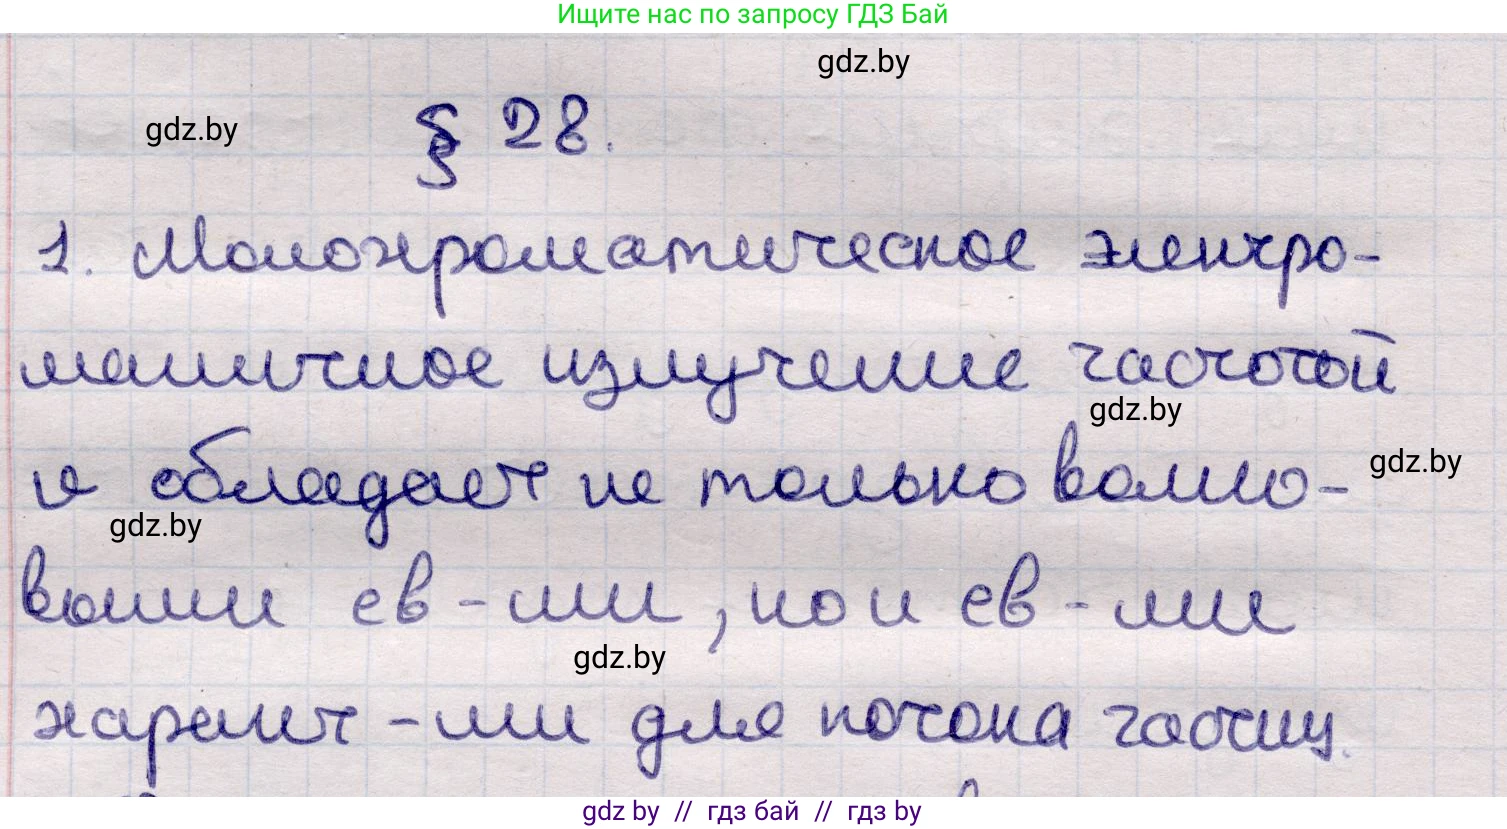 Ищите нас по запросу ГДЗ Бай
gdz.by
gdz.by
§ 28.
1. Монохроматическое электро-
магнитное излучение частотой
gdz.by
ν обладает не только волно-
gdz.by
gdz.by
выми св-ми, но и св-ми
gdz.by
характ-ми для потока частиц.
gdz by // гдз бай // гдз by